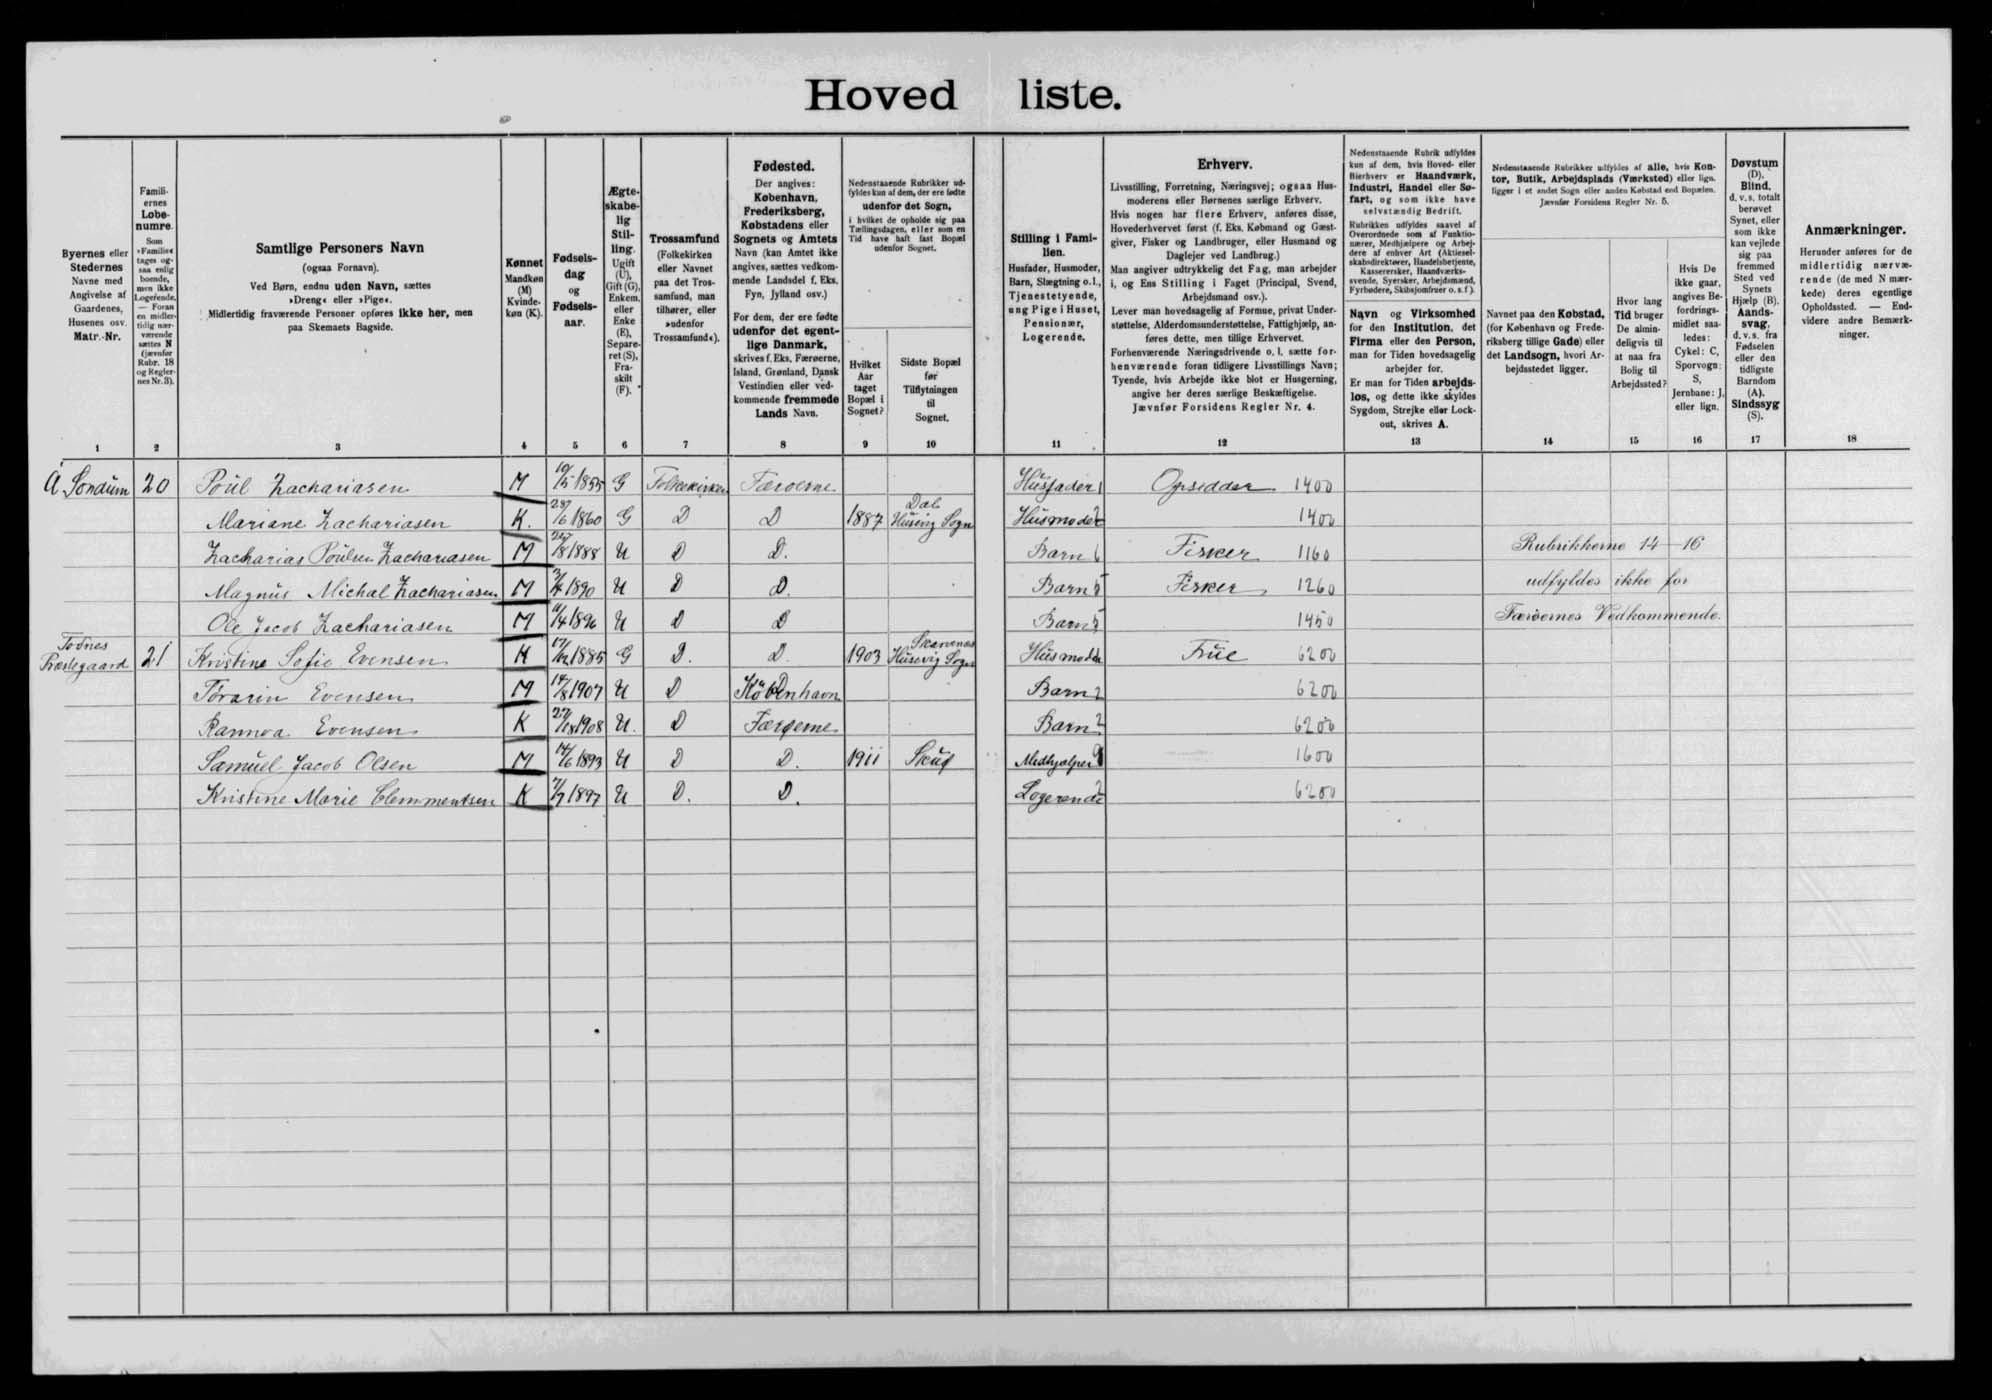 Hoved liste.
Byernes eller Stedernes Navne med Angivelse af Gaardenes, Husenes osv. Matr.-Nr.
Familiernes Løbenumre.
Som »Familie« tages ogsaa enlig boende, men ikke Logerende. — Foran en midlertidig nærværende sættes N (jævnfør Rubr. 18 og Regler nes Nr. 3).
Samtlige Personers Navn
(ogsaa Fornavn).
Ved Børn, endnu uden Navn, sættes
»Dreng« eller »Pige«.
Midlertidig fraværende Personer opføres ikke her, men
paa Skemaets Bagside.
Kønnet
Mandkøn (M) Kvindekøn (K).
Fødselsdag og Fødselsaar.
Ægteskabelig Stilling.
Ugift (U), Gift (G), Enkem. eller Enke (E), Separeret (S), Fraskilt (F).
Trossamfund
(Folkekirken eller Navnet paa det Trossamfund, man tilhører, eller »udenfor Trossamfund«).
Fødested.
Der angives:
København, Frederiksberg, Købstadens eller Sognets og Amtets Navn (kan Amtet ikke angives, sættes vedkommende Landsdel f. Eks. Fyn, Jylland osv.)
For dem, der ere fødte udenfor det egentlige Danmark, skrives f. Eks. Færøerne, Island, Grønland, Dansk Vestindien eller vedkommende fremmede Lands Navn.
Nedenstaaende Rubrikker udfyldes kun af dem, der ere fødte
udenfor det Sogn,
i hvilket de opholde sig paa Tællingsdagen, eller som en Tid have haft fast Bopæl udenfor Sognet.
Hvilket Aar taget Bopæl i Sognet?
Sidste Bopæl før Tilflytningen til Sognet.
Stilling i Familien.
Husfader, Husmoder, Barn, Slægtning o.l., Tjenestetyende, ung Pige i Huset, Pensionær, Logerende.
Erhverv.
Livsstilling, Forretning, Næringsvej; ogsaa Husmoderens eller Børnenes særlige Erhverv.
Hvis nogen har flere Erhverv, anføres disse, Hovederhvervet først (f. Eks. Købmand og Gæstgiver, Fisker og Landbruger, eller Husmand og Daglejer ved Landbrug.)
Man angiver udtrykkelig det Fag, man arbejder i, og Ens Stilling i Faget (Principal, Svend, Arbejdsmand osv.).
Lever man hovedsagelig af Formue, privat Understøttelse, Alderdomsunderstøttelse, Fattighjælp, anføres dette, men tillige Erhvervet.
Forhenværende Næringsdrivende o. l. sætte forhenværende foran tidligere Livsstillings Navn; Tyende, hvis Arbejde ikke blot er Husgerning, angive her deres særlige Beskæftigelse.
Jævnfør Forsidens Regler Nr. 4.
Nedenstaaende Rubrik udfyldes kun af dem, hvis Hoved- eller Bierhverv er Haandværk, Industri, Handel eller Søfart, og som ikke have selvstændig Bedrift.
Rubrikken udfyldes saavel af Overordnede som af Funktionærer, Medhjælpere og Arbejdere af enhver Art (Aktieselskabsdirektører, Handelsbetjente, Kasserersker, Haandværkssvende, Syersker, Arbejdsmænd, Fyrbødere, Skibsjomfruer o. s. f.).
Navn og Virksomhed for den Institution, det Firma eller den Person, man for Tiden hovedsagelig arbejder for.
Er man for Tiden arbejdsløs, og dette ikke skyldes Sygdom, Strejke eller Lockout, skrives A.
Nedenstaaende Rubrikker udfyldes af alle, hvis Kontor, Butik, Arbejdsplads (Værksted) eller lign. ligger i et andet Sogn eller anden Købstad end Bopælen.
Jævnfør Forsidens Regler Nr. 5.
Navnet paa den Købstad, (for København og Frederiksberg tillige Gade) eller det Landsogn, hvori Arbejdsstedet ligger.
Hvor lang Tid bruger De almindeligvis til at naa fra Bolig til Arbejdssted?
Hvis De ikke gaar, angives Befordringsmidlet saaledes: Cykel: C, Sporvogn: S, Jernbane: J, eller lign.
Døvstum (D). Blind, d. v. s. totalt berøvet Synet, eller som ikke kan vejlede sig paa fremmed Sted ved Synets Hjælp (B). Aandssvag, d. v. s. fra Fødselen eller den tidligste Barndom (A). Sindssyg (S).
Anmærkninger.
Herunder anføres for de midlertidig nærværende (de med N mærkede) deres egentlige Opholdssted. — Endvidere andre Bemærkninger.
1 2 3 4 5 6 7 8 9 10 11 12 13 14 15 16 17 18
Á Sondum 20 Poul Zachariasen M 10/5 1855 G Folkekirken Færøerne Husfader 1 Opsidder 1400
Mariane Zachariasen K. 28/6 1860 G D D 1887 Dal Husevig Sogn Husmoder 2 1400
Zacharias Poulsen Zachariasen M 1888 U D D. Barn 6 Fisker 1160 Rubrikkerne 14–16
Magnus Michal Zachariasen M 1890 U D D. Barn 5 Fisker 1260 udfyldes ikke for
Ole Jacob Zachariasen M 1896 U D D Barn 5 1450 Færøernes Vedkommende.
Todnes Præstegaard 21 Kristine Sofie Evensen K 1885 G D. D. 1903 Skarvenes Husevig Sogn Husmoder Frue 6200
Torarin Evensen M 14/8 1907 U D København Barn 2 6200
Rannva Evensen K 1908 U. D Færøerne Barn 2 6200
Samuel Jacob Olsen M 14/6 1893 U D D. 1911 Skuø Medhjælper 9 1600
Kristine Marie Clemmentsen K 1897 U D. D. Logerende 2 6200